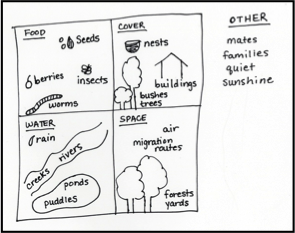 FOOD
Seeds
berries
insects
worms
COVER
nests
buildings
bushes
trees
WATER
rain
creeks
rivers
ponds
puddles
SPACE
air
migration
routes
forests
yards
OTHER
mates
families
quiet
sunshine